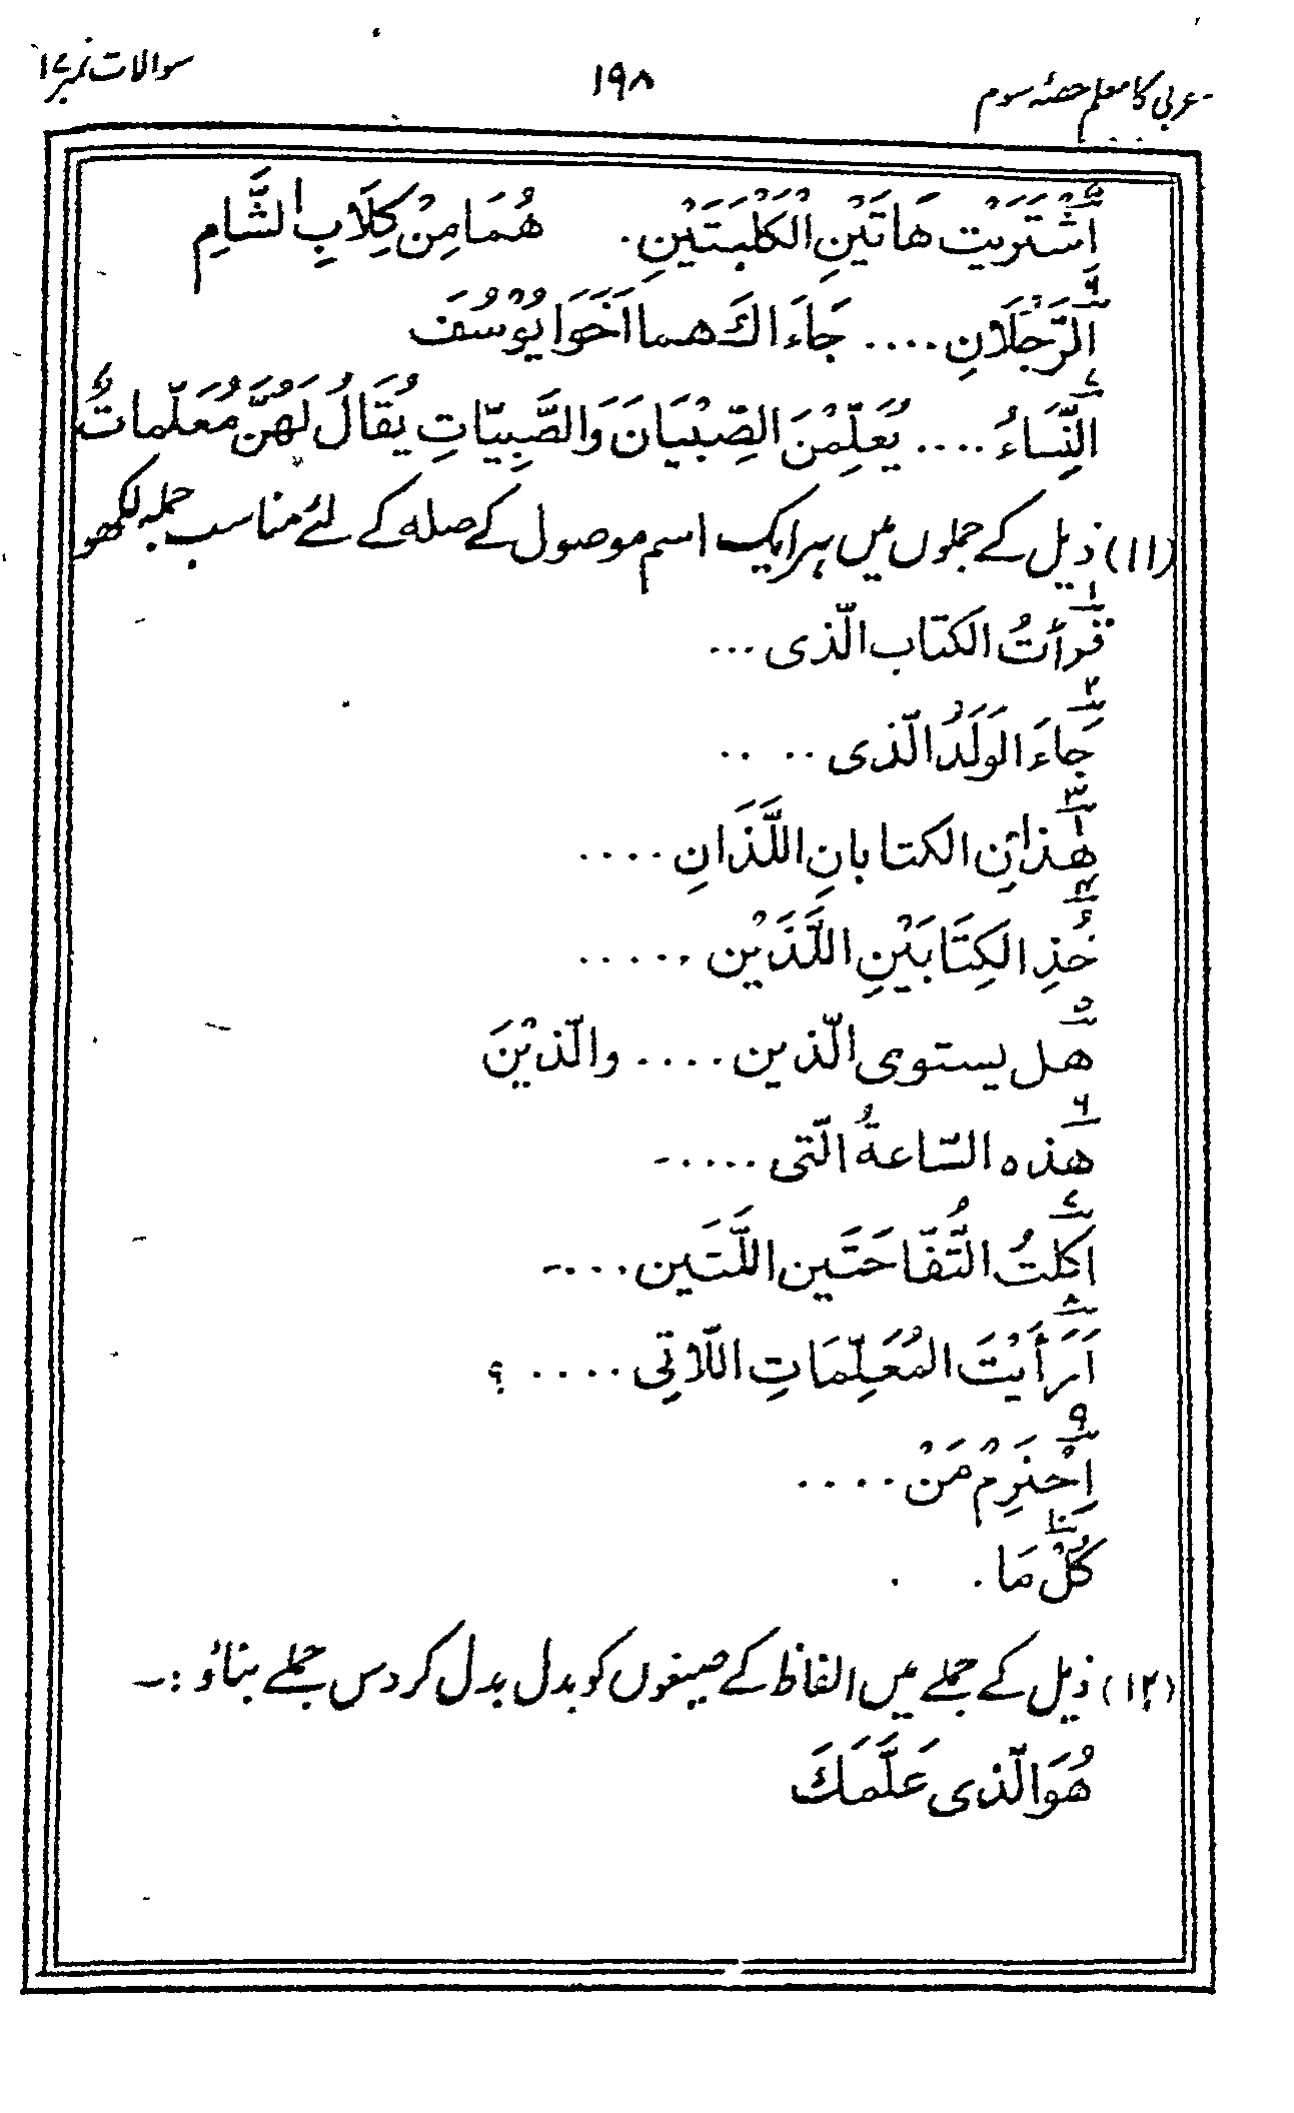 عربی کا معلم حصّہ سوم ۱۹۸ سوالات نمبر ۱۷
۵ اِشْتَرَیْتَ هَاتَیْنِ الْكَلْبَتَیْنِ. هُمَا مِنْ كِلَابِ الشَّامِ
۶ الرَّجُلَانِ .... جَاءَاكَ هما اَخَوَا یُوْسُفَ
۷ النِّسَاءُ .... یُعَلِّمْنَ الصِّبْیَانَ وَالصَّبِیّاتِ یُقَالُ لَهُنَّ مُعَلّماتٌ
(۱۱) ذیل کے جملوں میں ہر ایک اسم موصول کے صلہ کے لئے مناسب جملہ لکھو
۱ قرأتُ الكتاب الّذی ...
۲ جَاءَ الوَلَدُ الّذی .. ..
۳ هٰذانِ الكتابانِ اللَّذَانِ ....
۴ خُذِ الكِتَابَیْنِ اللَّذَیْن .....
۵ هل یستوی الّذین .... والّذیْنَ
۶ هذه السّاعةُ الّتی ....-
۷ اكلتُ التُّفّاحَتَین اللَّتَین ...-
۸ اَرَأَیْتَ المُعَلِّمَاتِ اللّاتِی .... ؟
۹ اِحْتَرِمْ مَنْ ....
۱۰ كُلْ مَا . .
(۱۲) ذیل کے جملے میں الفاظ کے صیغوں کو بدل بدل کر دس جملے بناؤ :-
هُوَ الّذی عَلَّمَكَ